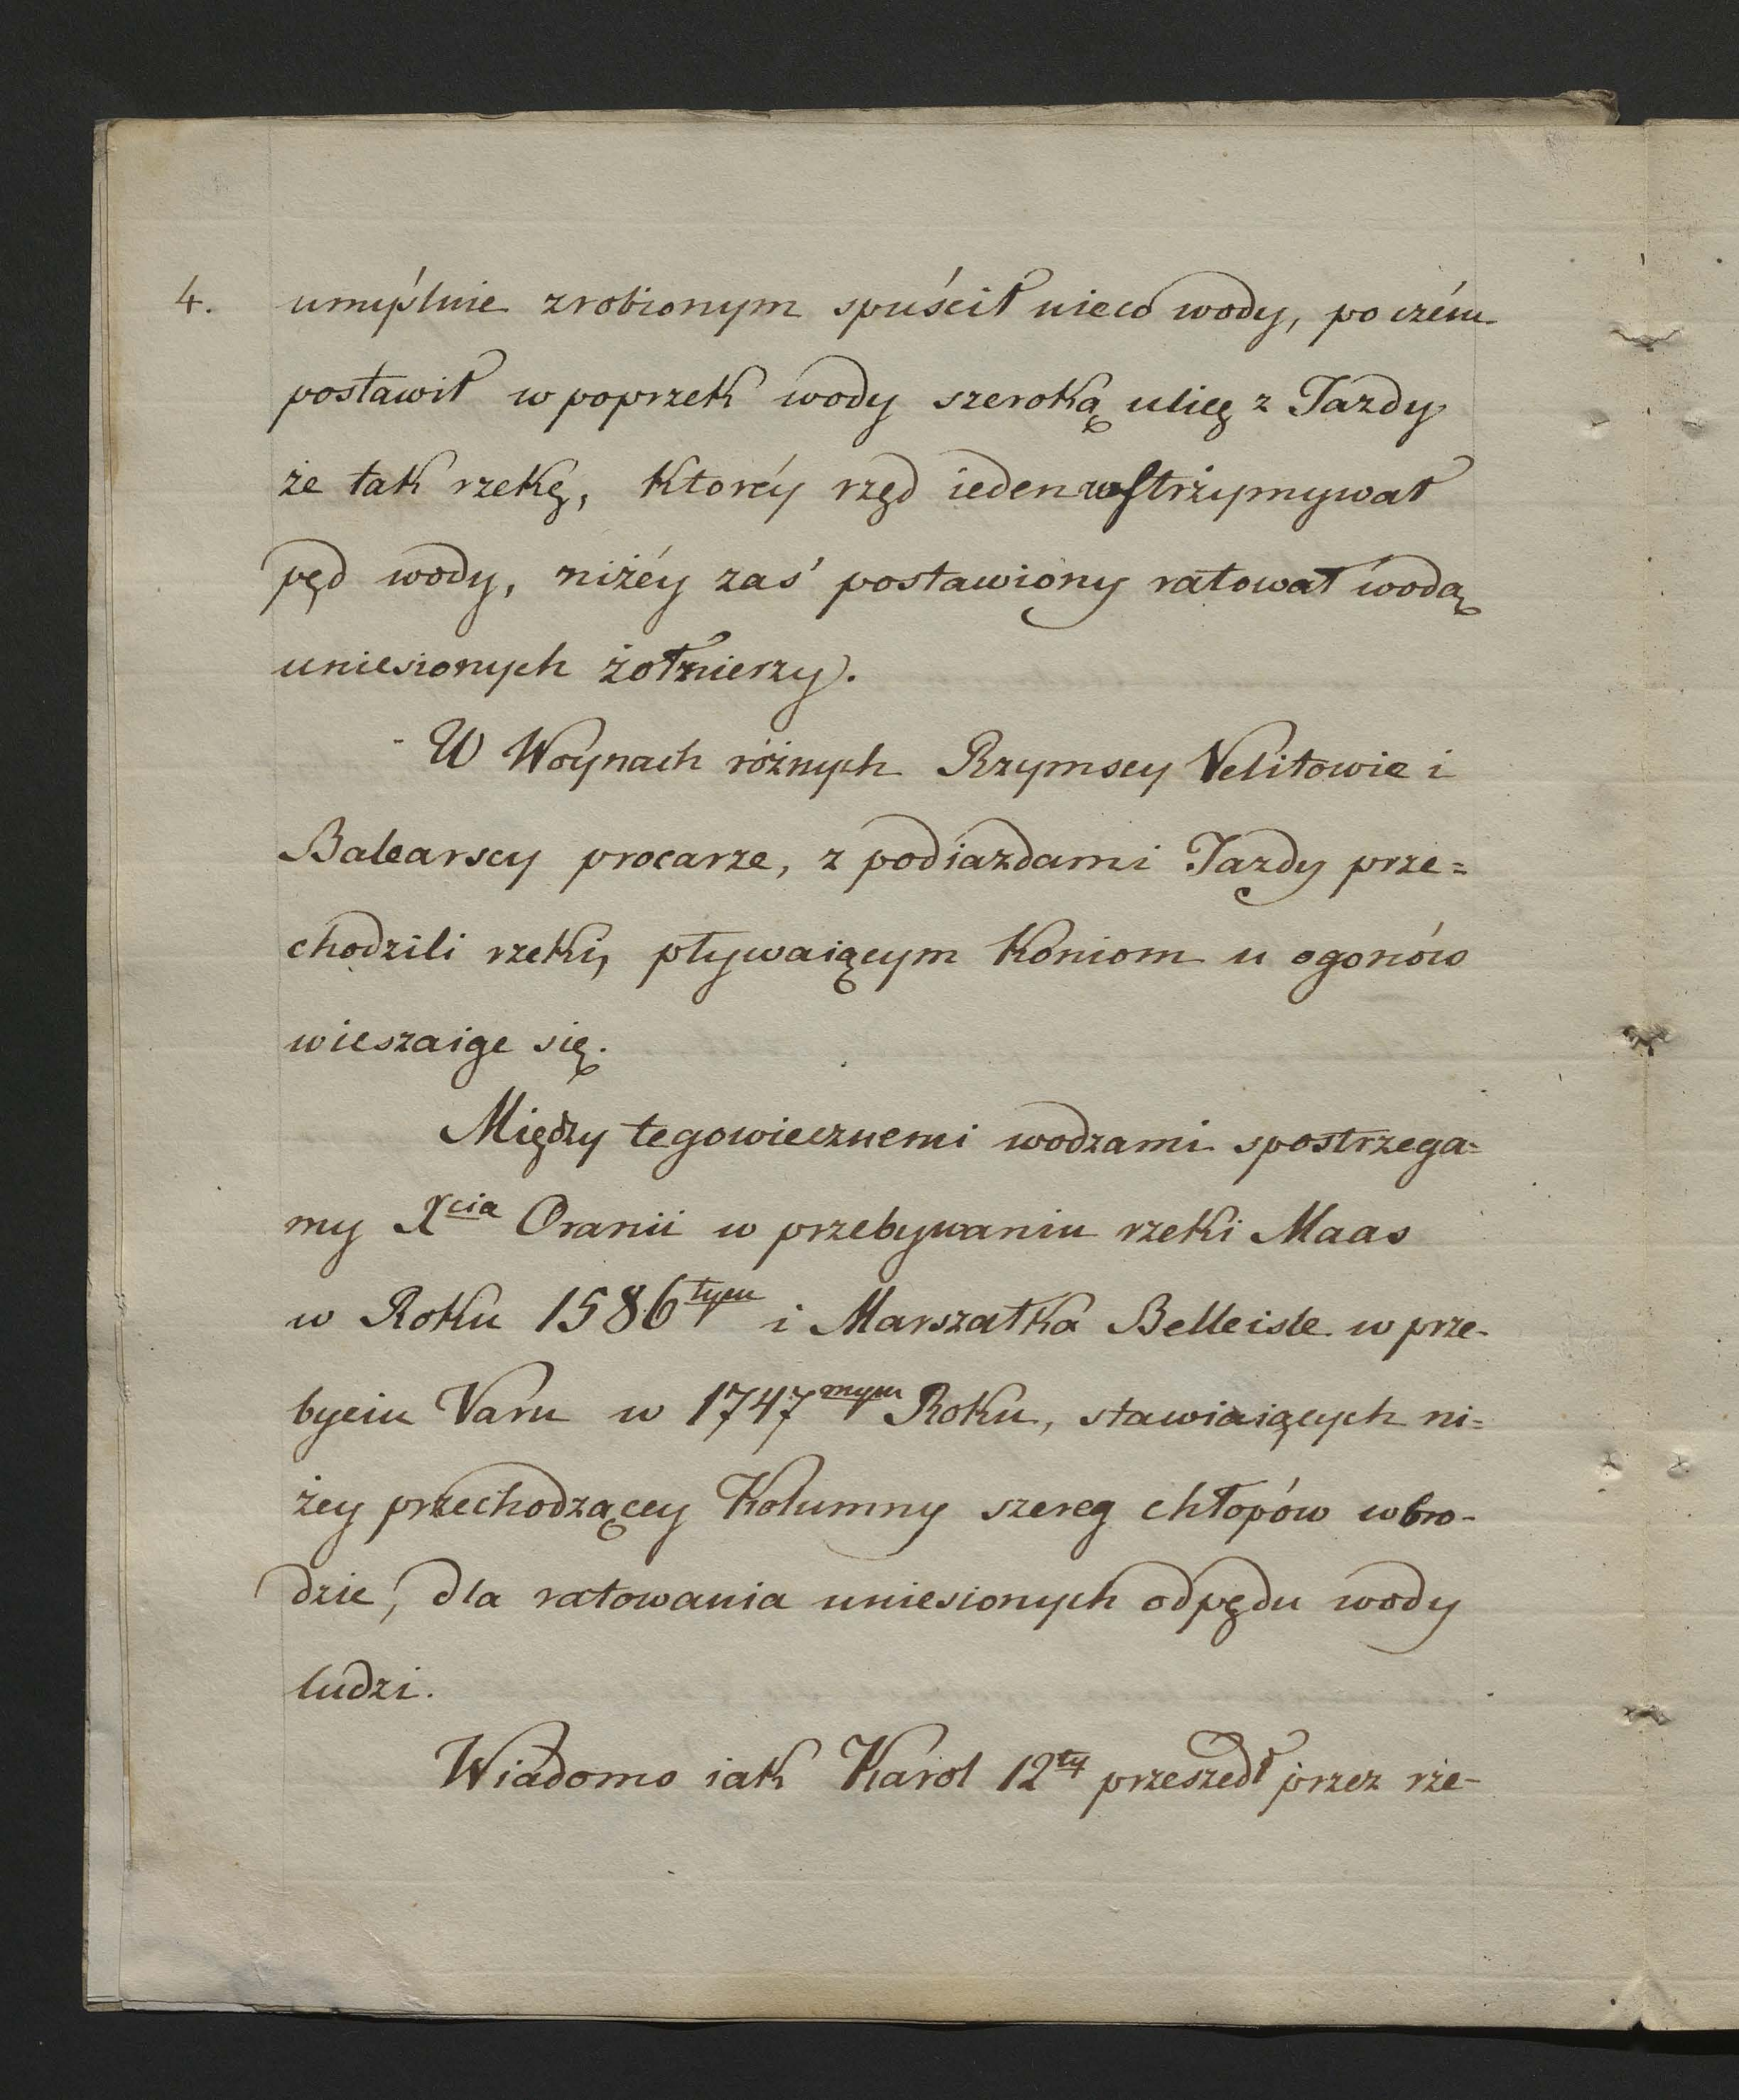 4. umyślnie zrobionym spuścił nieco wody, po czém
postawił w poprzek wody szeroką ulicę z Jazdy
że tak rzekę, ktoréy rzęd ieden wstrzymywał
pęd wody, niżéy zaś postawiony ratował wodą
uniesionych żołnierzy.
W Woynach różnych Rzymscy Velitowie i
Balearscy procarze, z podiazdami Jazdy prze=
chodzili rzeki, pływaiącym koniom u ogonów
wieszaiąc się.
Między tegowiecznemi wodzami spostrzega=
my Xcia Oranii w przebywaniu rzeki Maas
w Roku 1586tym i Marszałka Belleisle w prze-
byciu Varu w 1747mym Roku, stawiaiących ni=
żey przechodzącey Kolumny szereg chłopów w bro-
dzie, dla ratowania uniesionych od pędu wody
ludzi.
Wiadomo iak Karol 12ty przeszedł przez rze-